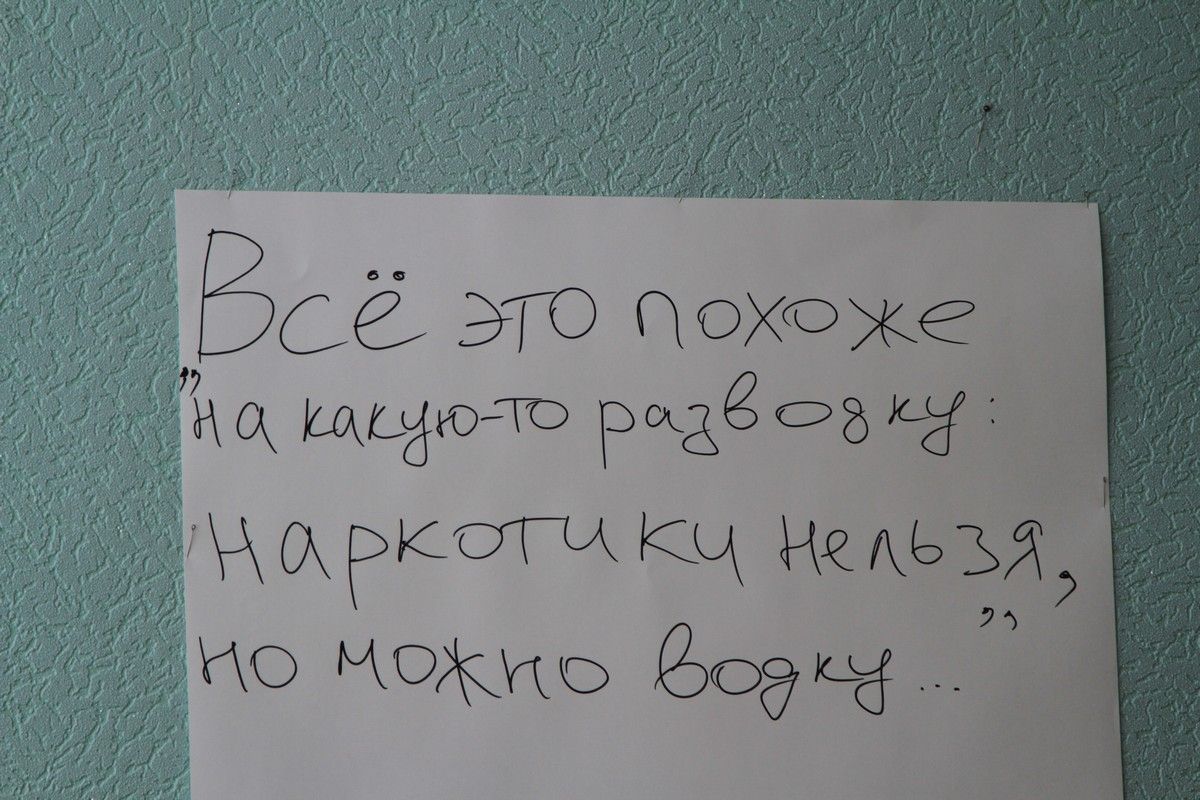 Всё это похоже
„на какую-то разводку:
Наркотики нельзя,
но можно водку...”